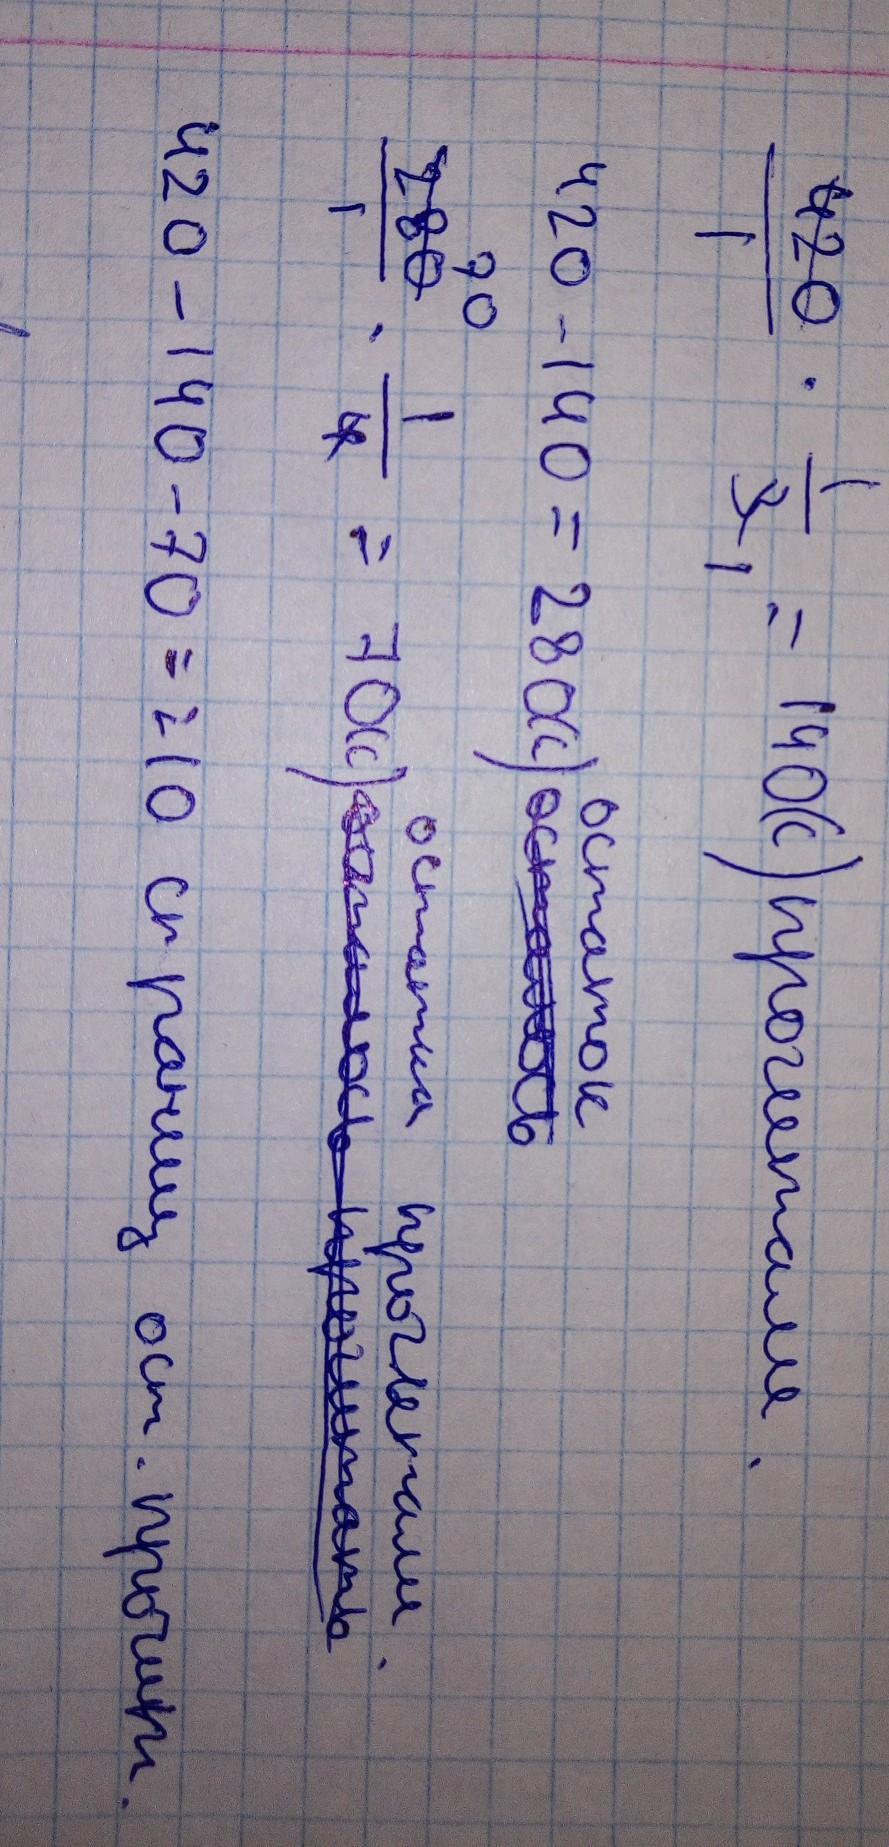 420/1 · 1/3 1 = 140(с) прочитали.
420 - 140 = 280(с) остаток
280/1 70 · 1/4 = 70(с) остатка прочитали.
420 - 140 - 70 = 210 страниц ост. прочит.